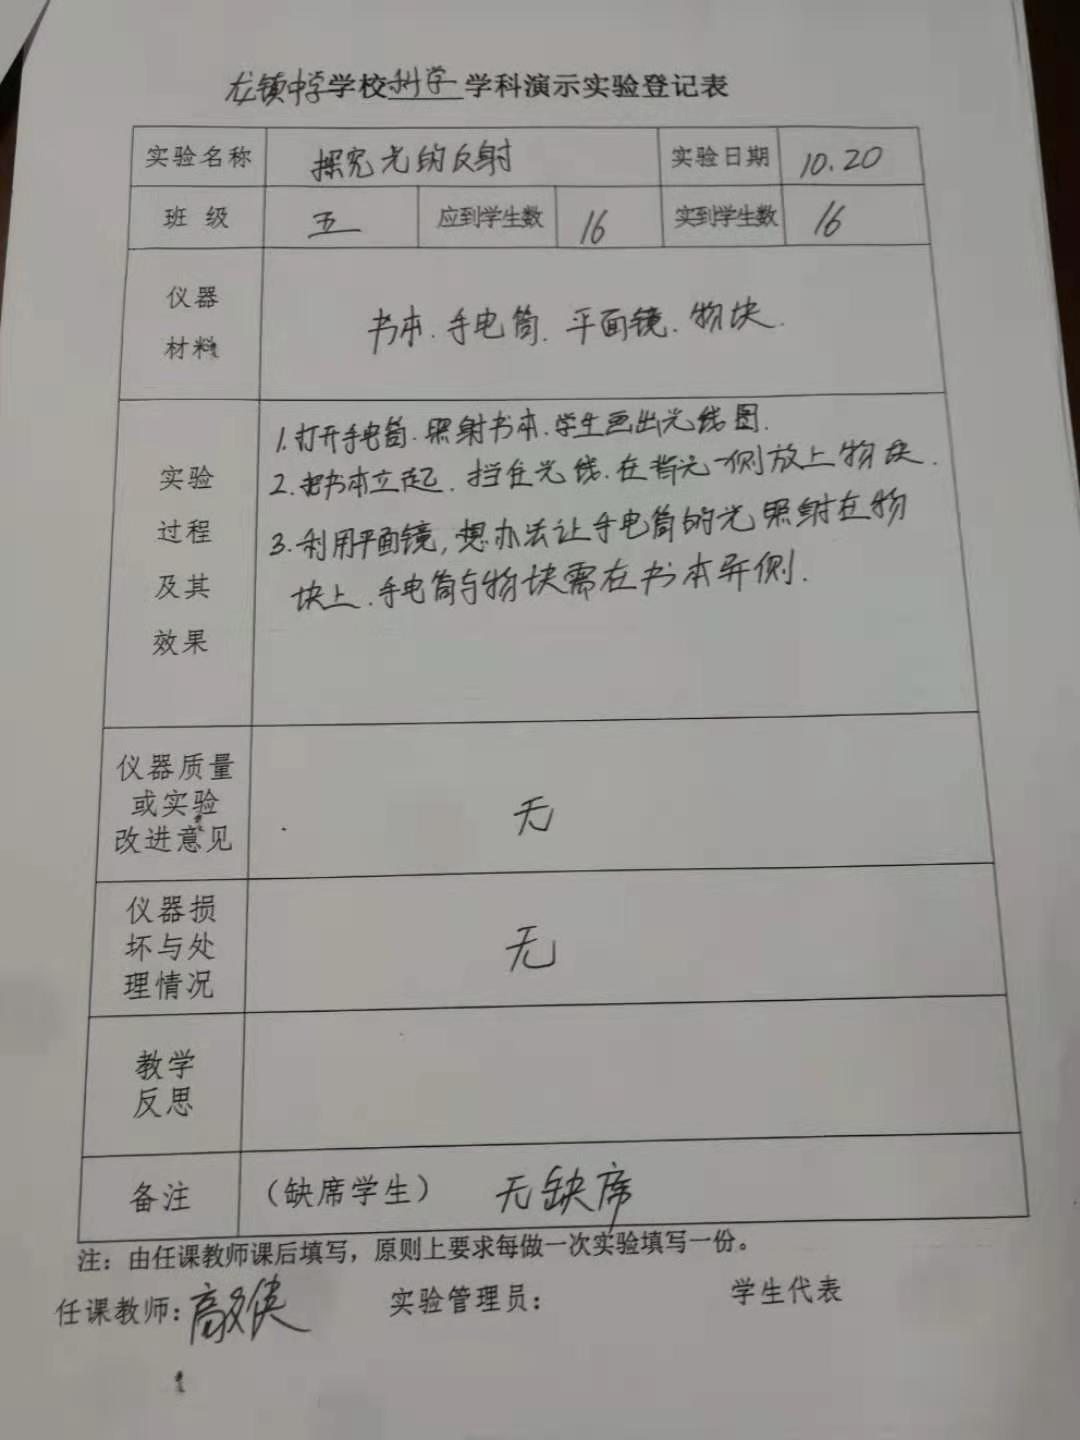 龙镇中学学校科学学科演示实验登记表
实验名称 探究光的反射 实验日期 10.20
班 级 五 应到学生数 16 实到学生数 16
仪器
材料
书本.手电筒.平面镜.物块.
实验
过程
及其
效果
1.打开手电筒.照射书本.学生画出光线图.
2.把书本立起.挡住光线.在背光一侧放上物块.
3.利用平面镜,想办法让手电筒的光照射在物
块上.手电筒与物块需在书本异侧.
仪器质量
或实验
改进意见
无
仪器损
坏与处
理情况
无
教学
反思
备注 （缺席学生） 无缺席
注：由任课教师课后填写，原则上要求每做一次实验填写一份。
任课教师：高 侠 实验管理员： 学生代表